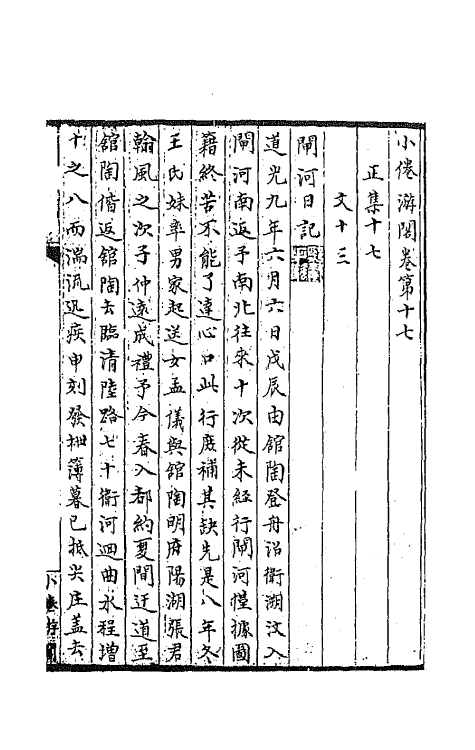 小倦游閣卷第十七
正集十七
文十三
閘河日記
道光九年六月六日戊辰由館陶登舟沿衛溯汶入
閘河南返予南北往來十次從未經行閘河僅據圖
籍終苦不能了達心口此行庶補其缺先是八年冬
王氏妹率男家起送女孟儀與館陶明府陽湖張君
翰風之次子仲遠成禮予今春入都約夏間迂道至
館陶偕返館陶去臨清陸路七十衛河迴曲水程增
十之八而湍流迅疾申刻發棹簿暮已抵尖庄蓋去
小倦游閣